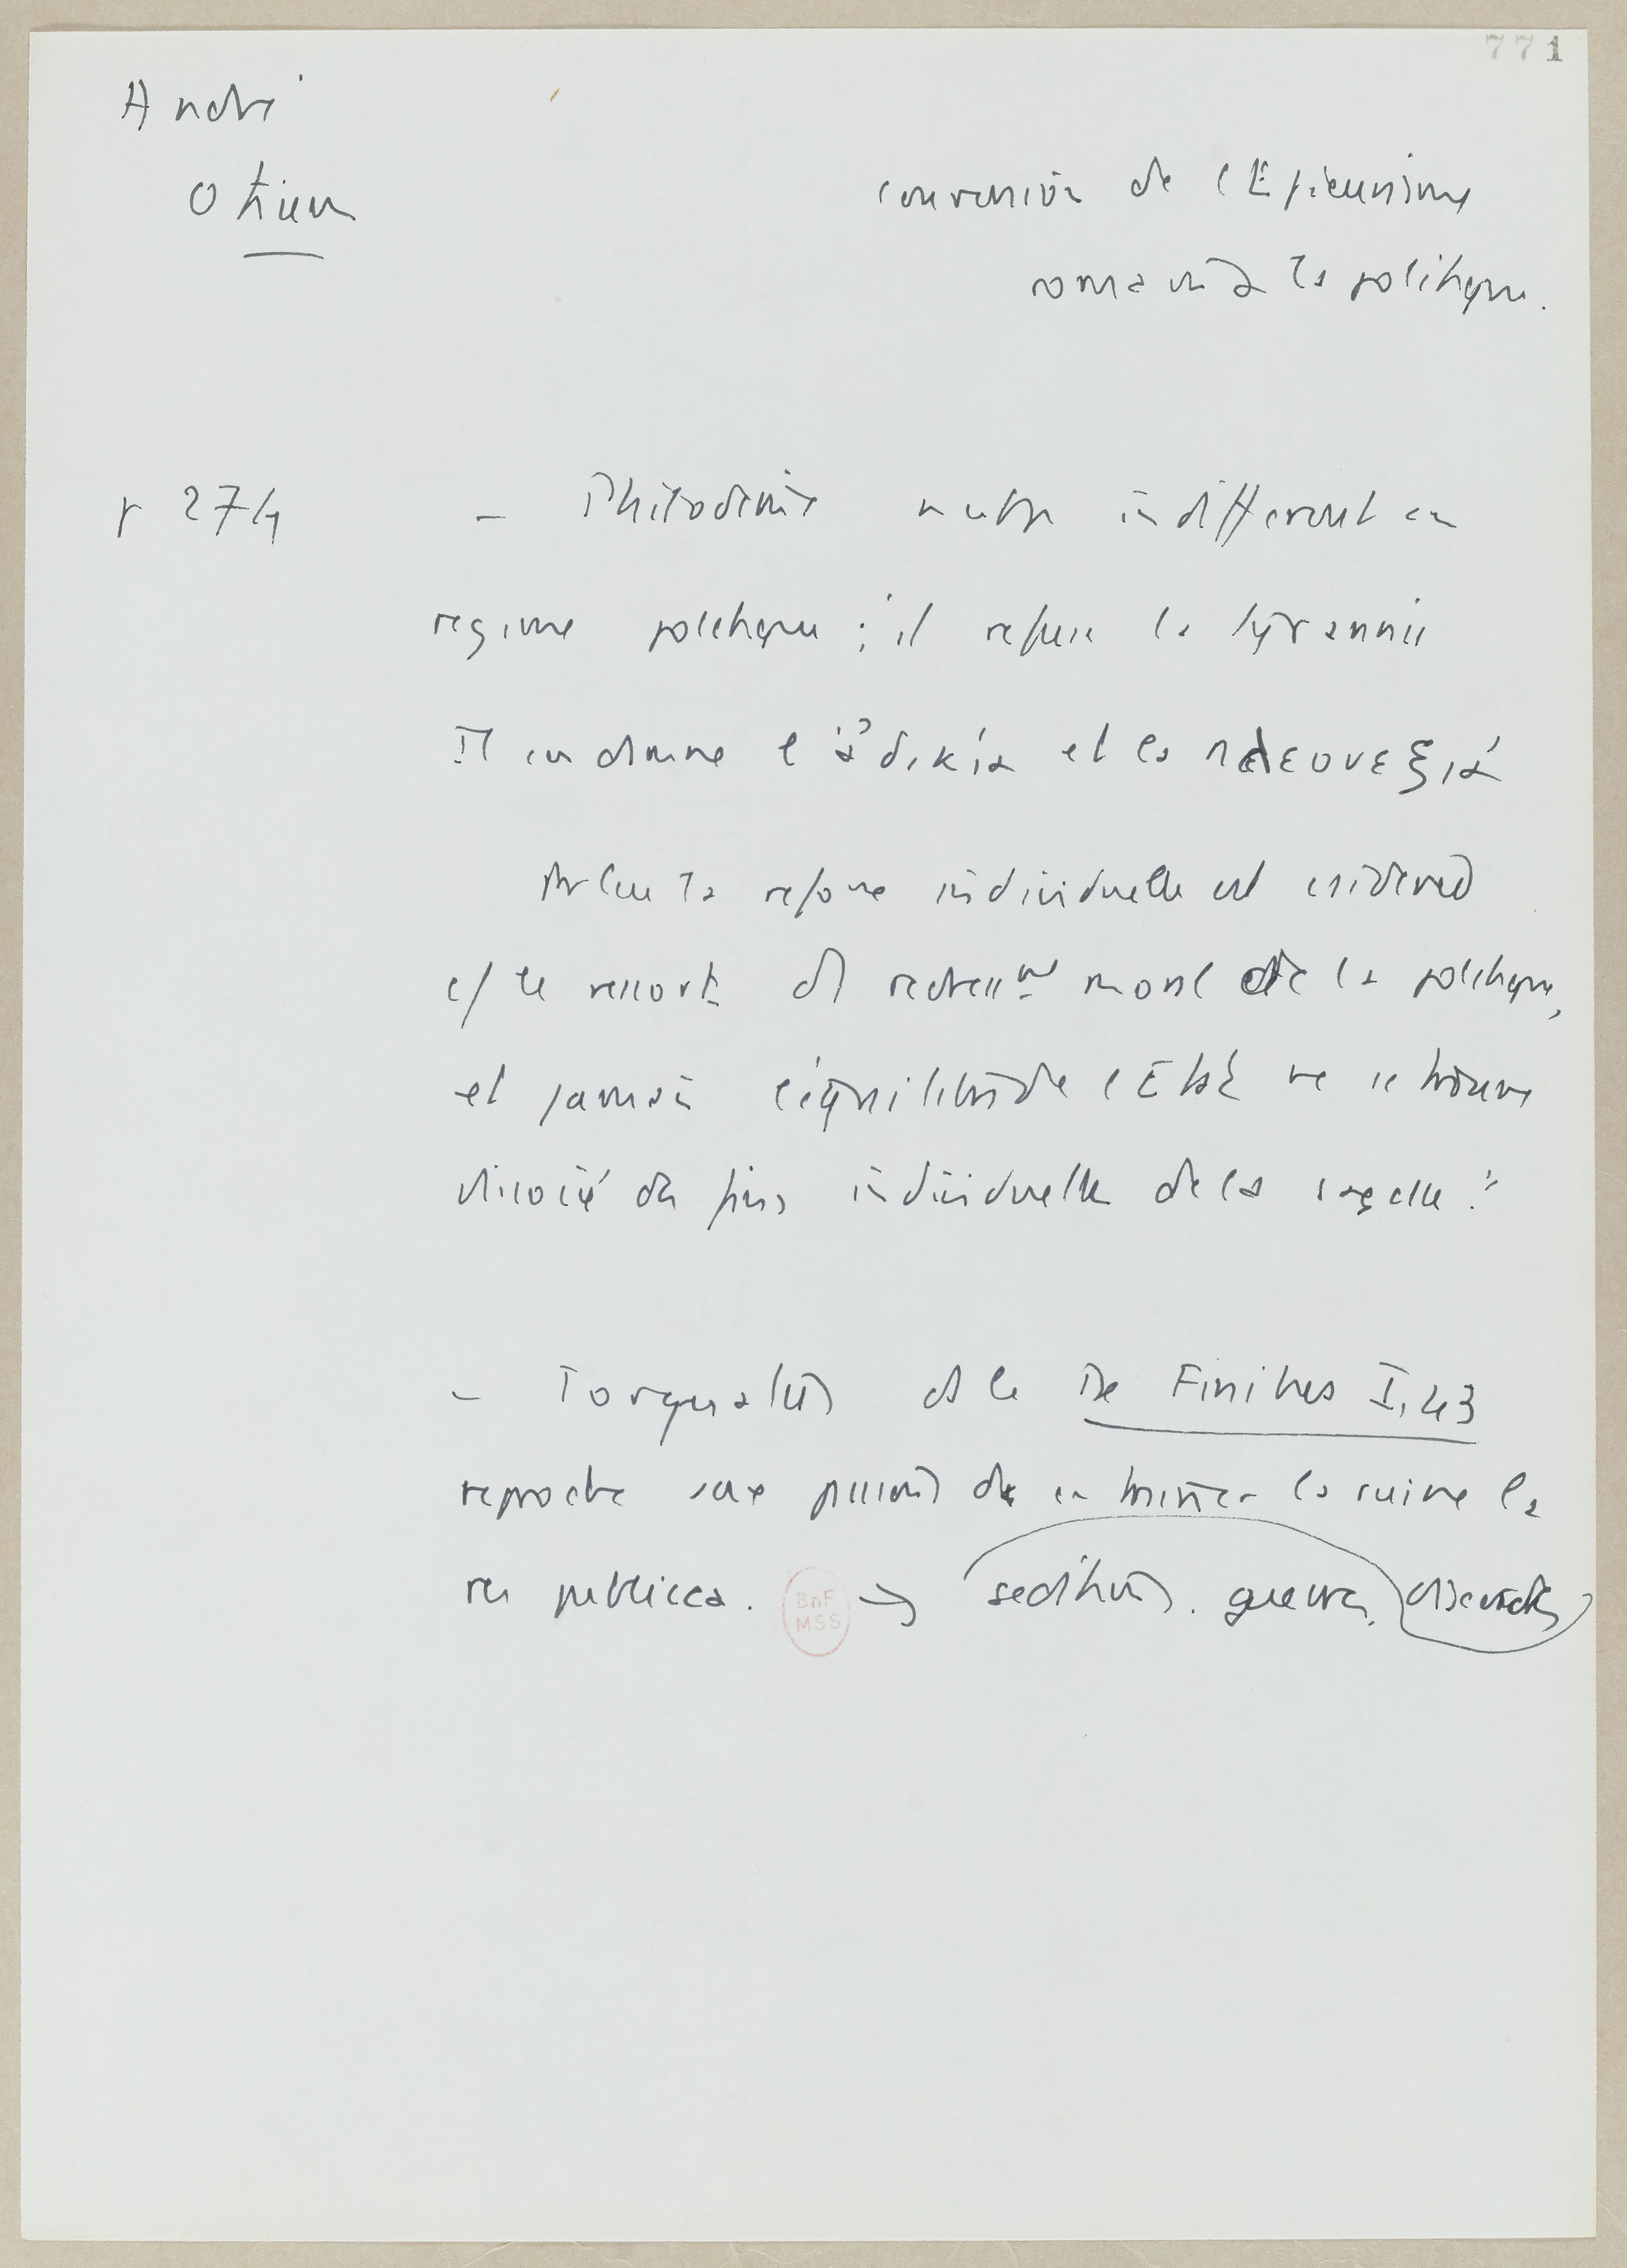 771
André
Otium
conversion de l'Epicurisme
romain à la politique.
p 274
- Philodème n'est pas indifférent au
régime politique ; il refuse la tyrannie
Il condamne l'ἀδικία et la πλεονεξία
la réforme individuelle est
c/ le ressort du redressmt moral de la politique,
et jamais l'équilibre de l'Etat ne se trouve
dissocié des fins individuelles de la sagesse."
- Torquatus ds le De Finibus I, 43
reproche aux passions de la ruine la
res publica. → seditions. guerres. discordes
BnF
MSS